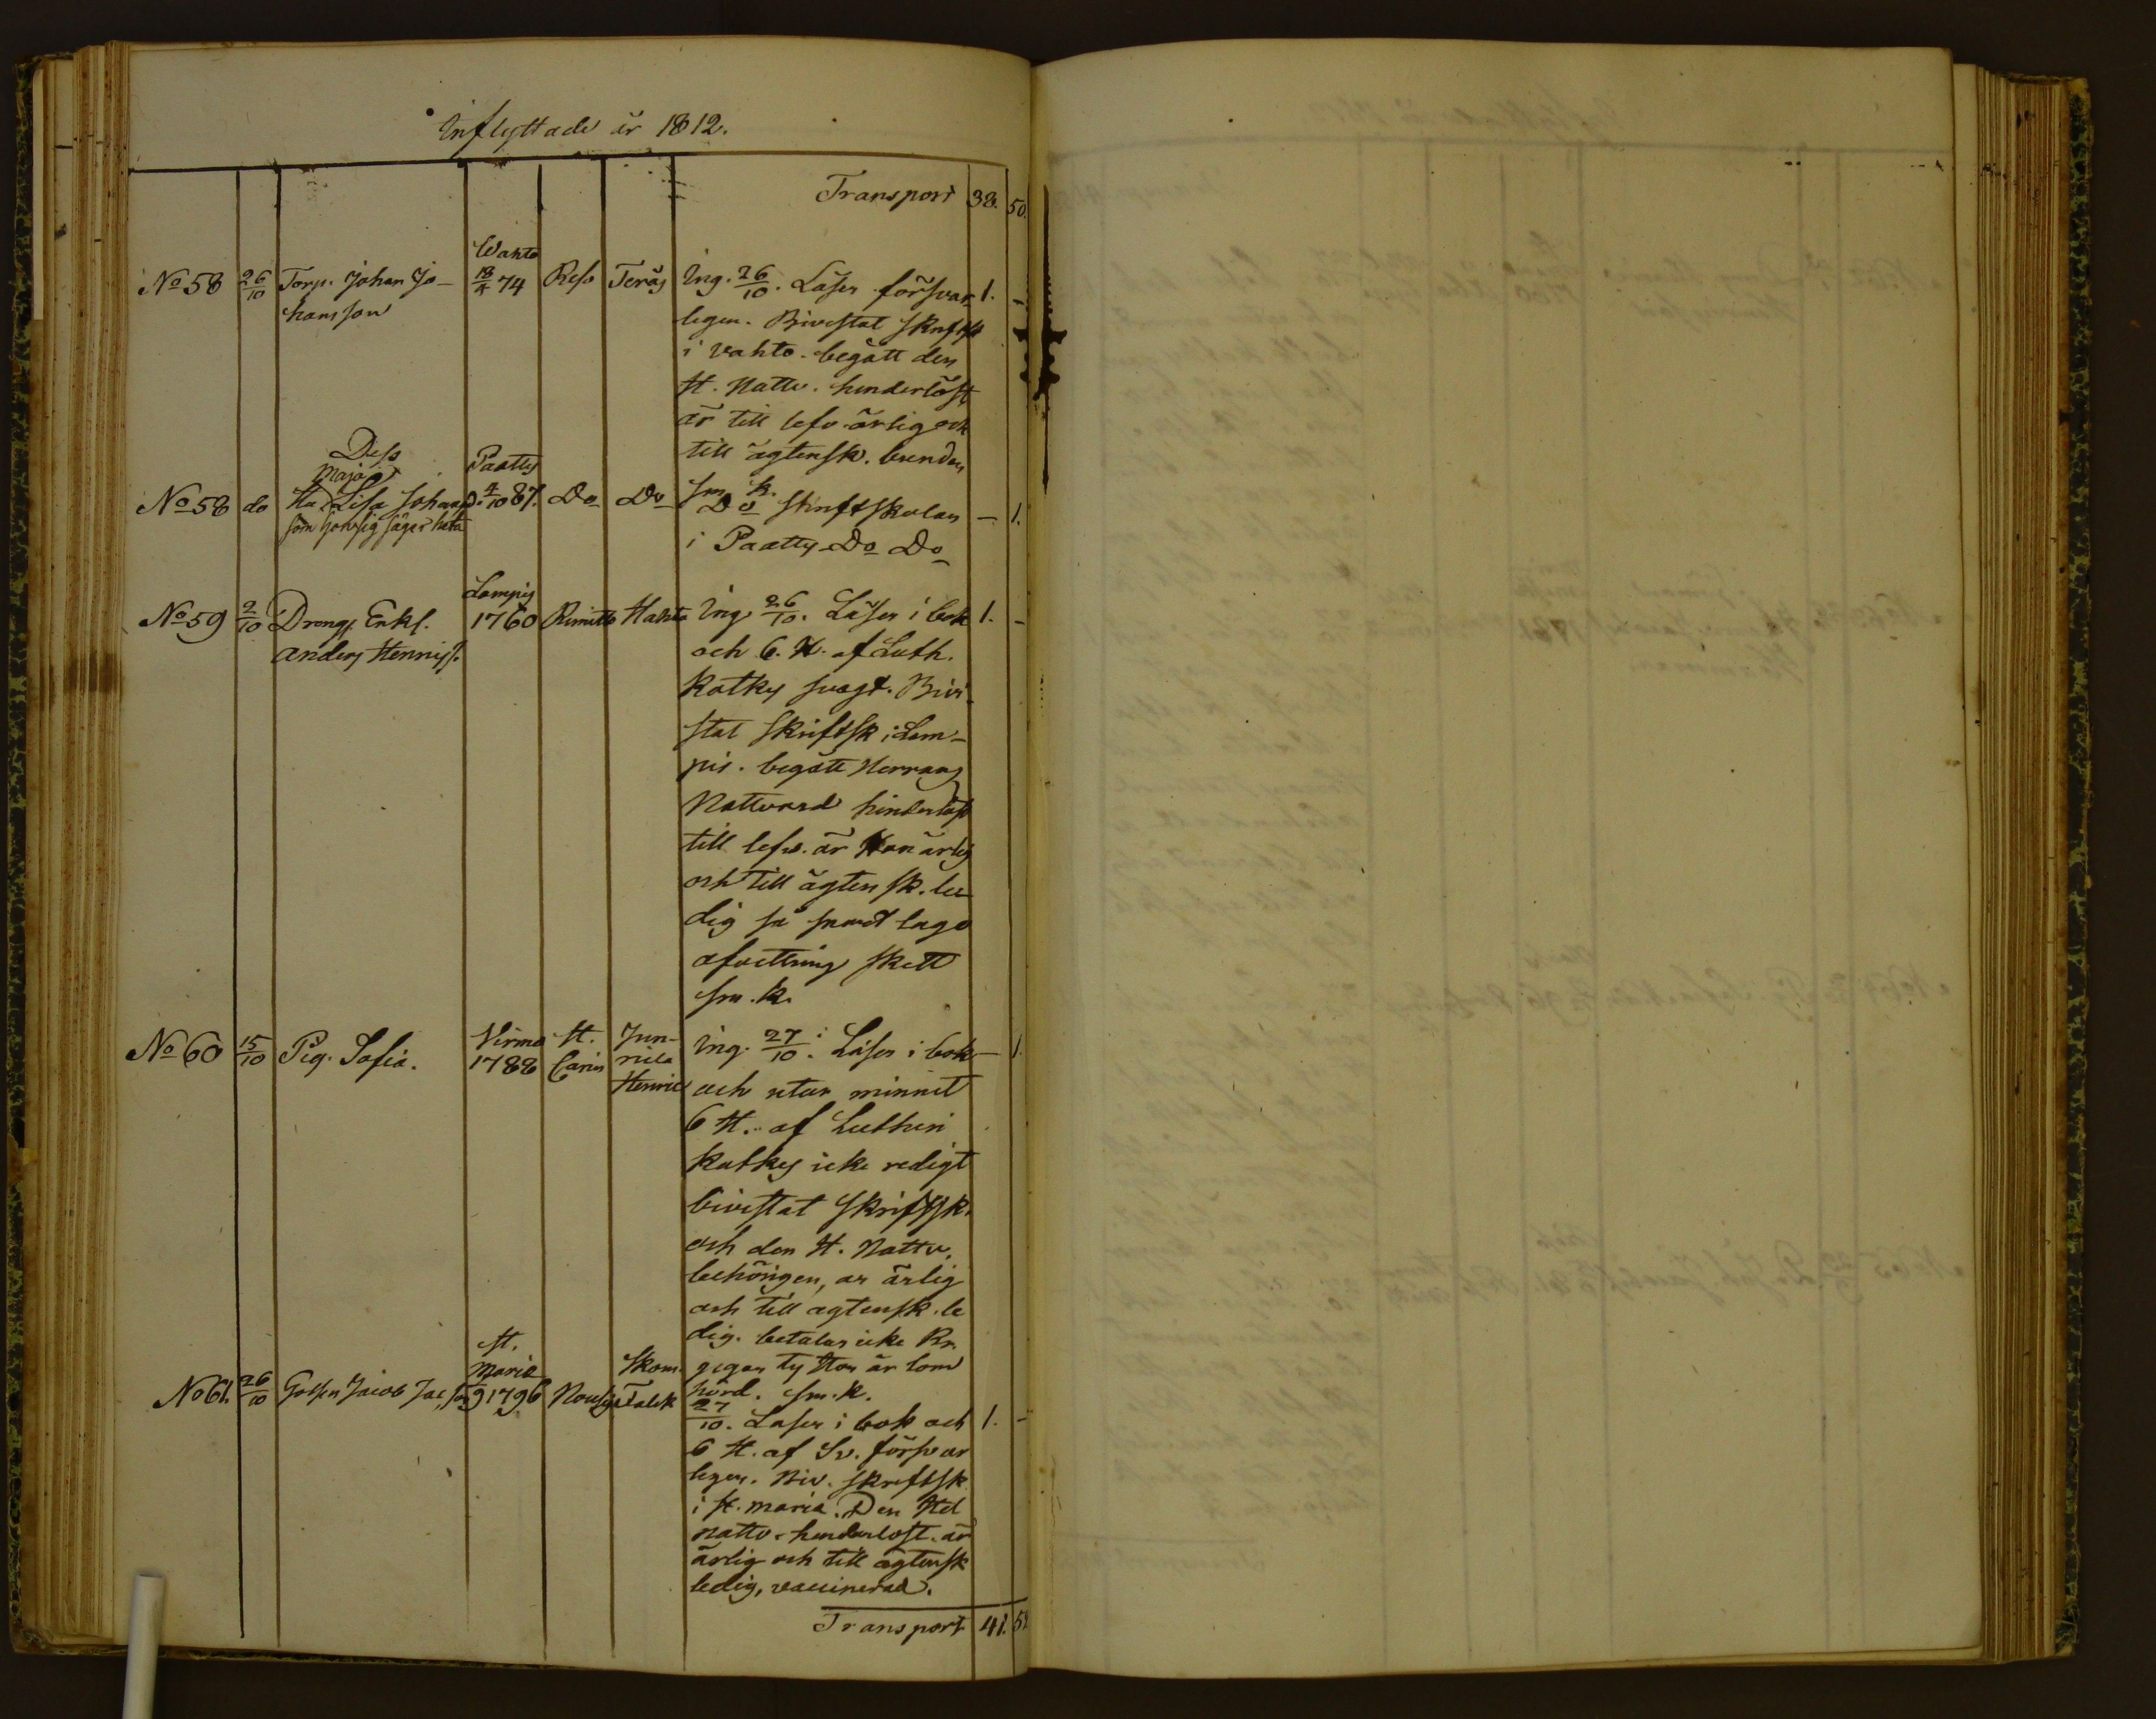 Inflyttade år 1812.
Transport 38. 50.
No 58 26/10 Torp. Johan Jo-
hansson
Wahto
18/4 74 Reso Teräs
Ing. 26/10. Läser försvar- 1. -
ligen. Bivistat skriftsk
i Vahto. begått den
H. Nattv. hinderlöst
är till lefv. ärlig och
till ägtensk. bunden
sm. k.
Dess
Maja
No 58 do Hu Lisa Johansd.
som hon sig säger heta
Paatty
4/10 87. Do Do
Do skriftskolan - 1.
i Paatty Do Do
No 59 2/10 Dreng. Enkl.
Anders Henriss.
Lampis
1760 Rimito Hahto
Ing 26/10. Läser i bok 1. -
och 6. H. af Luth.
Katkes svagt. Bivi-
stat skriftsk i Lem-
pis. begått Herrans
Nattvard hinderlöst
till lefv. är Han ärlig
och till ägtensk. le-
dig så snart laga
afvittring skett
sm. k.
No 60 15/10 Pig. Sofia.
Virmo
1788
St.
Carin
Jun-
nila
Henric
Ing. 27/10. Läser i bok - 1.
och utur minnet
6 H. af Lutheri
Katkes icke redigt
bivistat skriftsk.
och den H. Nattv.
behörigen, är ärlig
och till ägtensk. le
dig. betalar icke Kr.
gegan ty Hon är lom
hörd. sm. k.
No 61. 26/10 Gossen Jacob Jac.son
St.
Maria
9 1796 Nousis
Skom.
Falck
27/10. Läser i bok och 1. -
6 H. af Sv. försvar
ligen. Biv. skriftsk
i St. Maria. Den Hel
nattv. hinderlöst. är
ärlig och till ägtensk
ledig, vaccinerad.
Transport 41. 52